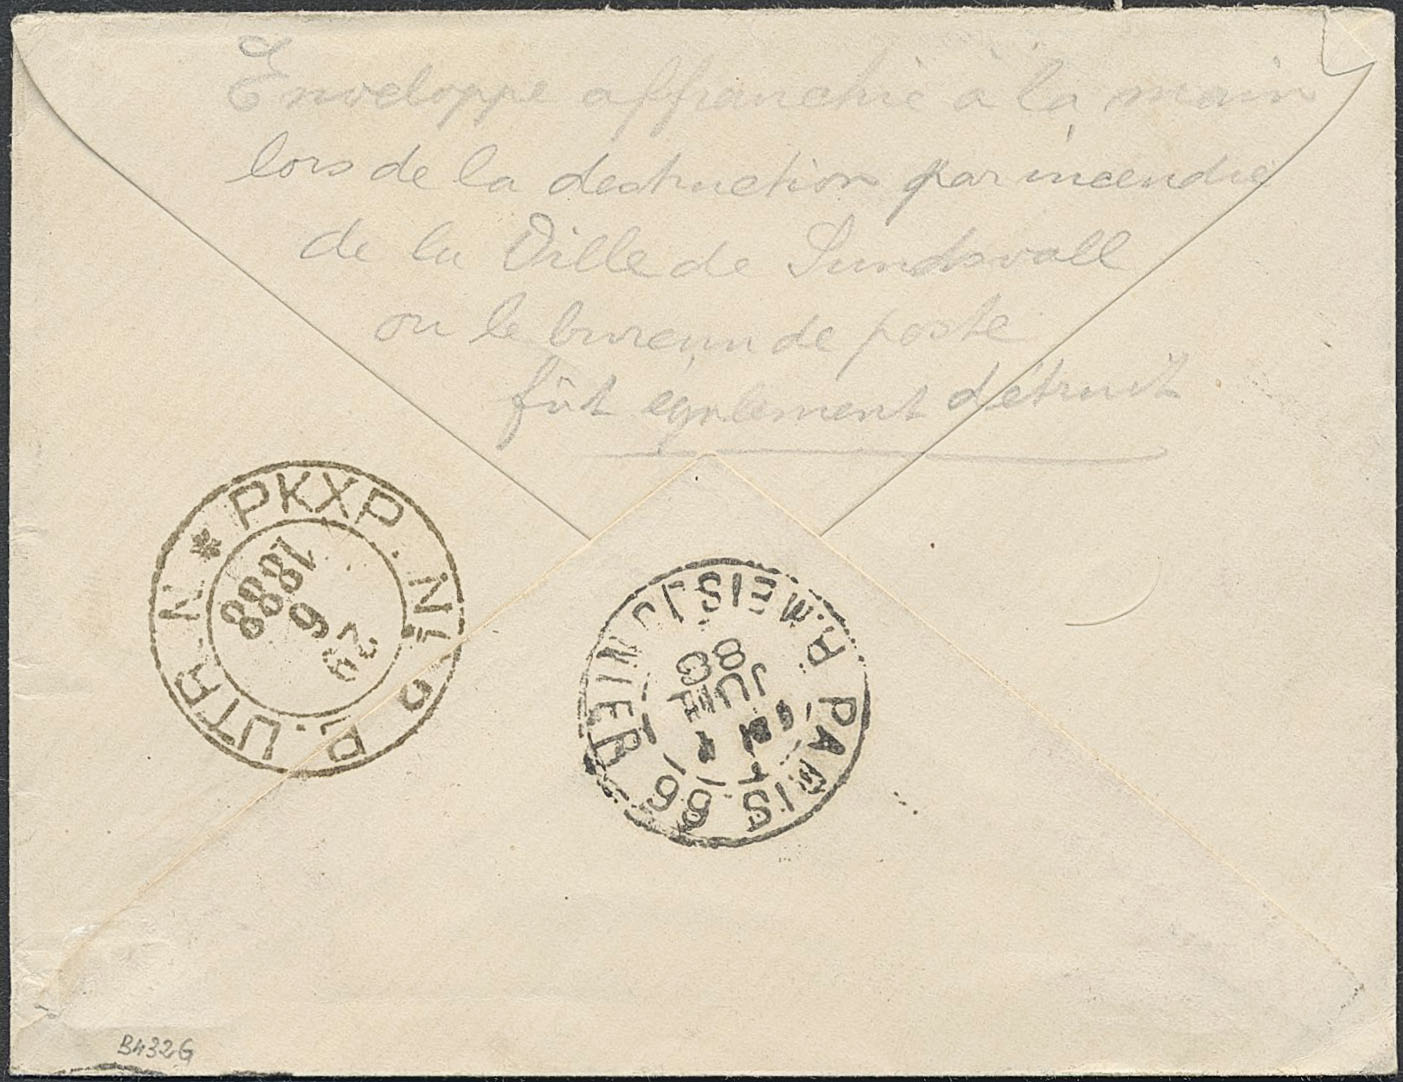 Enveloppe affranchie à la main
lors de la destruction par incendie
de la Ville de Sundsvall
ou le bureau de poste
fût également détruit
* PKXP. Nr 2 B. UTR. N
29
6
1888
PARIS 66
JUIL
88
B432G